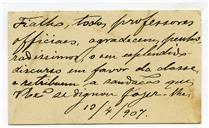 Fialho, Tosto, professores
officiaes, agradecem, penho-
radissimos, o seu esplendido
discurso em favor da classe
e retribuem a saudação que
Vex.ª se dignou fazer-lhe.
10/4/907.